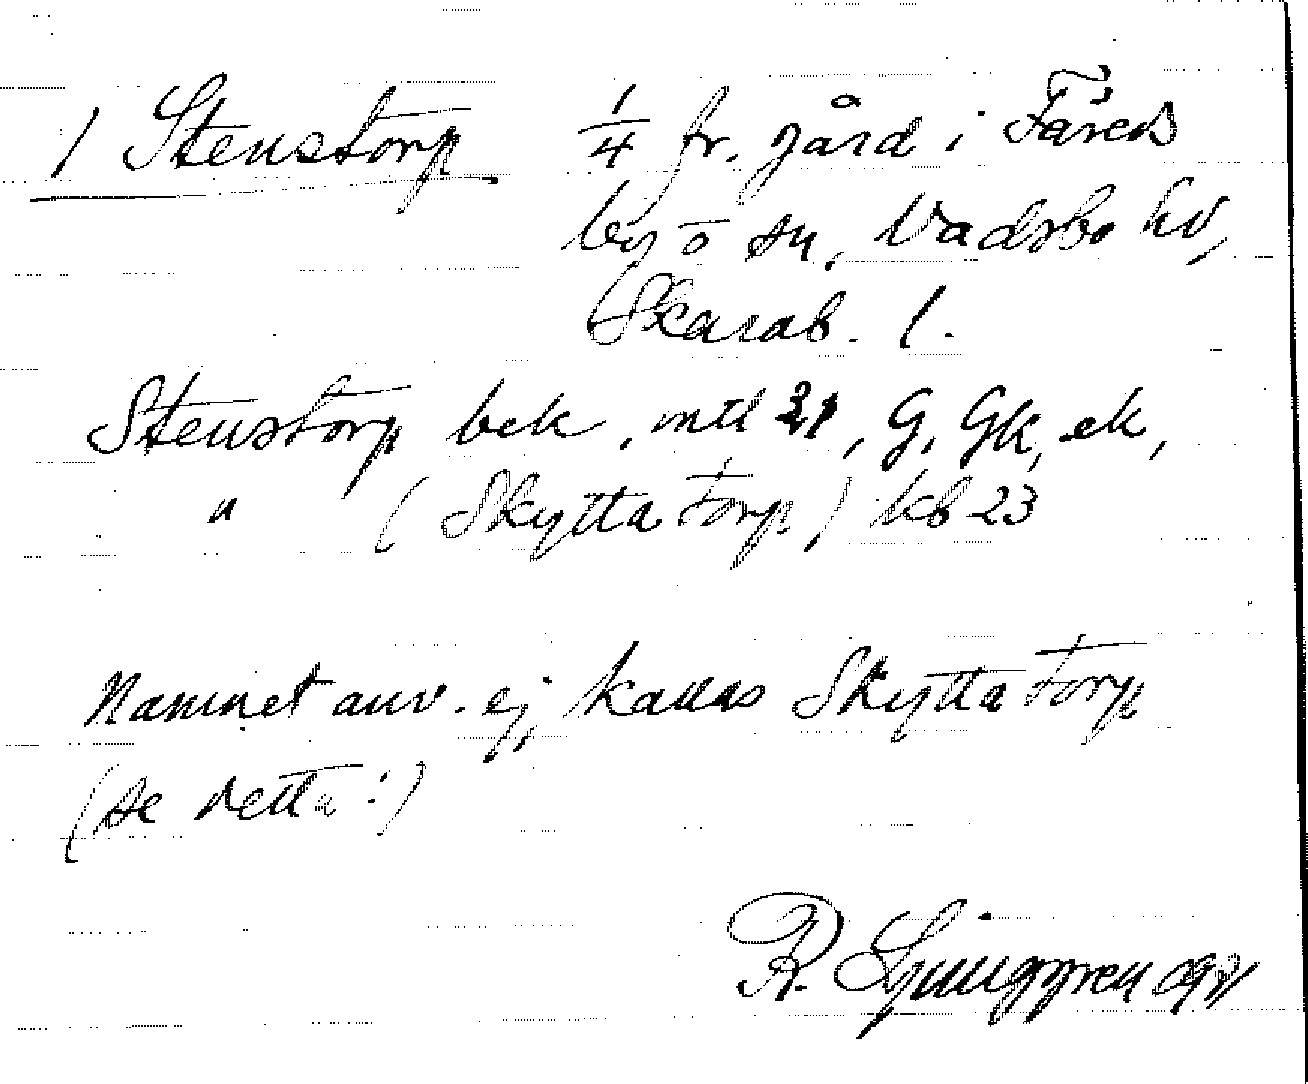 1 Stenstorp 1/4 fr. gård i Färeds
by o sn, Vadsbo hd,
Skarab. l.
Stenstorp bek, mtl 31, G, Gk, ek,
" (Skyttatorp) kb 23
Namnet anv. ej, kallas Skyttatorp
(se detta!)
R. Ljunggren